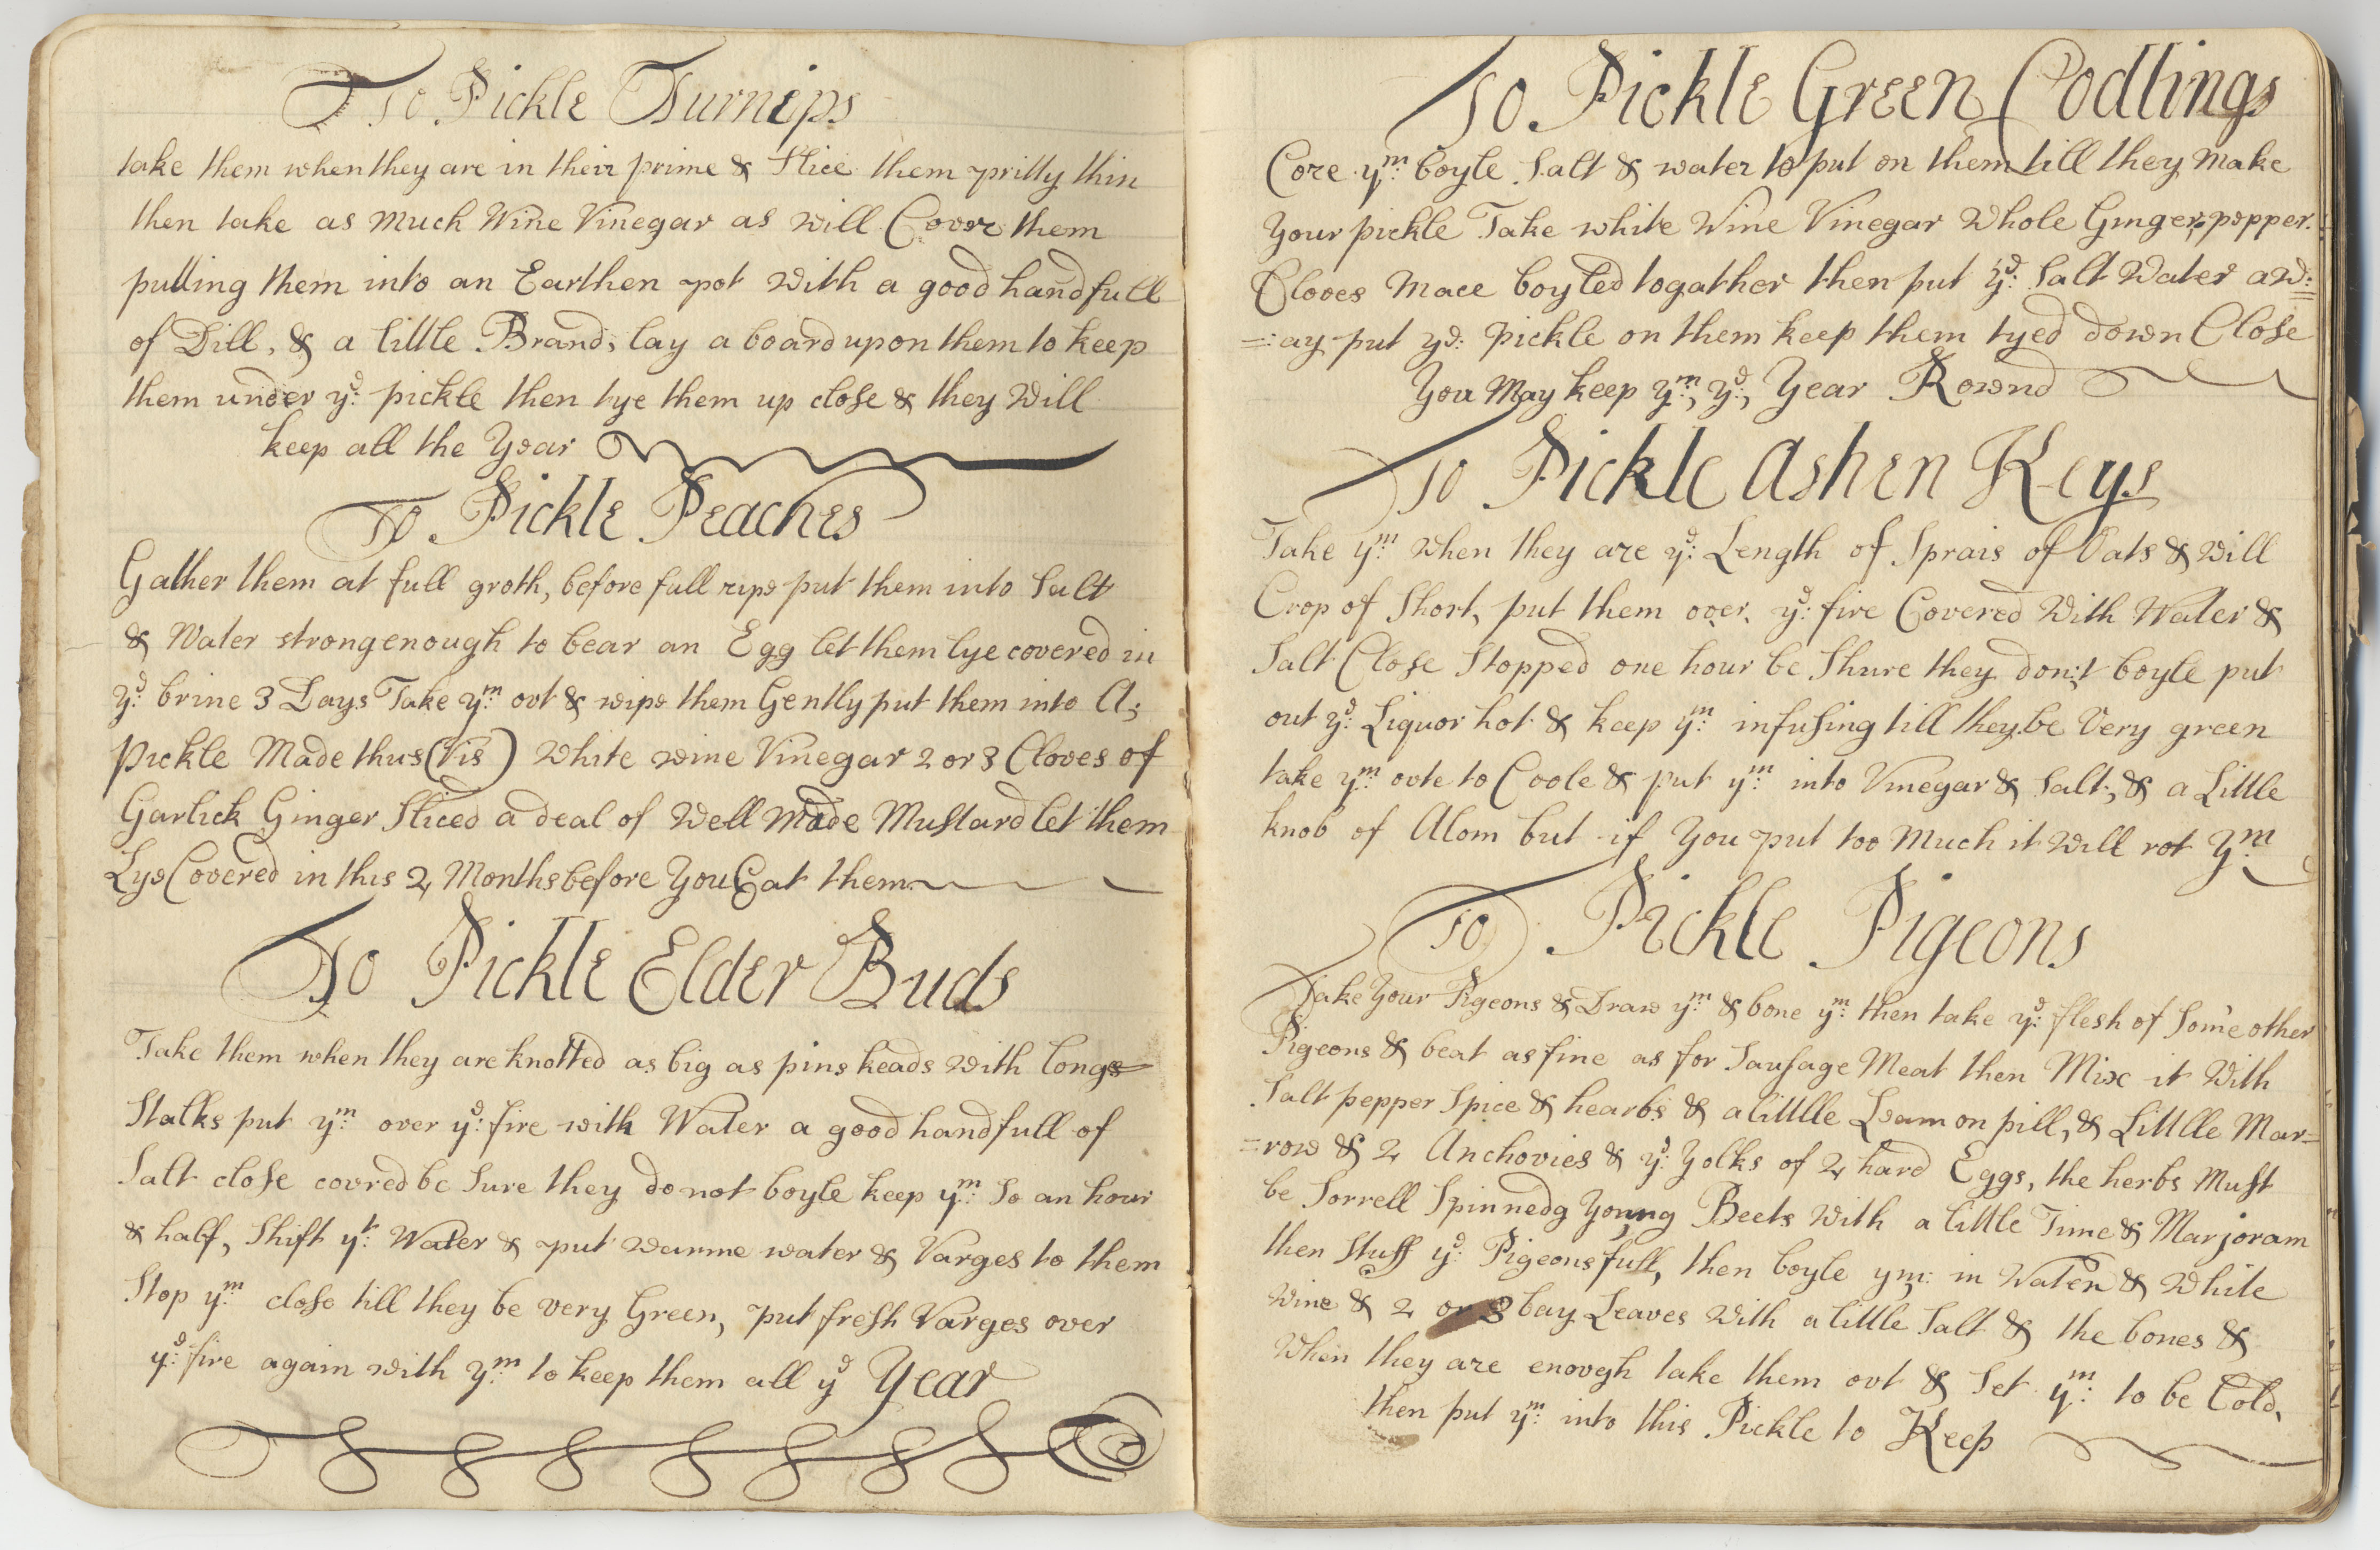 To Pickle Turnips
take them when they are in their prime & Slice them pritty thin
then take as much Wine Vinegar as will Cover them
putting them into an Earthen pot With a good handfull
of Dill, & a little Brand; lay a board upon them to keep
them under ye: pickle then tye them up close & they Will
keep all the Year
To Pickle Peaches
Gather them at full groth, before full ripe put them into Salt
& Water strong enough to bear an Egg let them lye covered in
ye: brine 3 Days Take ym: out & wipe them Gently put them into A;
Pickle Made thus (Vis) White wine Vinegar 2 or 3 Cloves of
Garlick Ginger Sliced a deal of Well Made Mustard let them
Lye Covered in this 2 Months before You Eat them
To Pickle Elder Buds
Take them when they are knotted as big as pins heads With long
Stalks put ym: over ye: fire with Water a good handfull of
Salt close covred be Sure they do not boyle keep ym: So an hour
& half, Shift yt: Water & put warme water & Varges to them
Stop ym: close till they be very Green, put fresh Varges over
ye: fire again with ym: to keep them all ye Year
To Pickle Green Codlings
Core ym: boyle Salt & water to put on them till they Make
Your pickle Take white Wine Vinegar Whole Ginger, pepper.
Cloves Mace boyled togather then put ye: Salt Water aw:
=:ay put ye: Pickle on them keep them tyed down Close
You May keep ym:, ye:, Year Rownd
To Pickle Ashen Keys
Take ym: When they are ye: Length of Sprais of Oats & will
Crop of Short, put them over, ye: fire Covered With Water &
Salt Close Stopped one hour be Shure they don;t boyle put
out ye: Liquor hot & keep ym: infusing till they be Very green
take ym: oute to Coole & put ym: into Vinegar & Salt, & a Little
knob of Alom but if You put too Much it Will rot ym:
To Pickle Pigeons
Take Your Pigeons & Draw ym: & bone ym: then take ye: flesh of Some other
Pigeons & beat as fine as for Sausage Meat then Mix it With
Salt pepper Spice & hearbs & a littlle Leamon pill, & Littlle Mar=
=row & 2 Anchovies & ye: Yolks of 2 hard Eggs, the herbs Must
be Sorrell Spinnedg Young Beets With a little Time & Marjoram
then Stuff ye: Pigeons full, then boyle ym: in Water & White
Wine & 2 or 3 bay Leaves With a little Salt & the bones &
When they are enough take them out & Set ym: to be Cold,
then put ym: into this Pickle to Keep